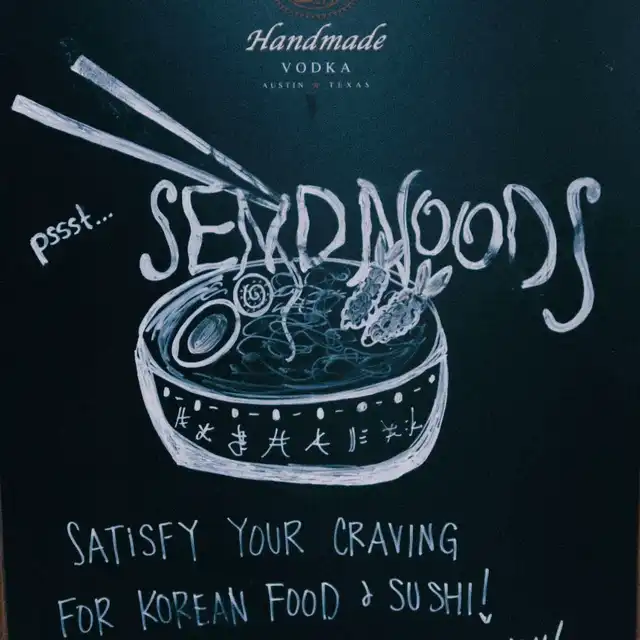 Handmade
VODKA
AUSTIN ★ TEXAS
pssst...
SEND NOODS
SATISFY YOUR CRAVING
FOR KOREAN FOOD & SUSHI!